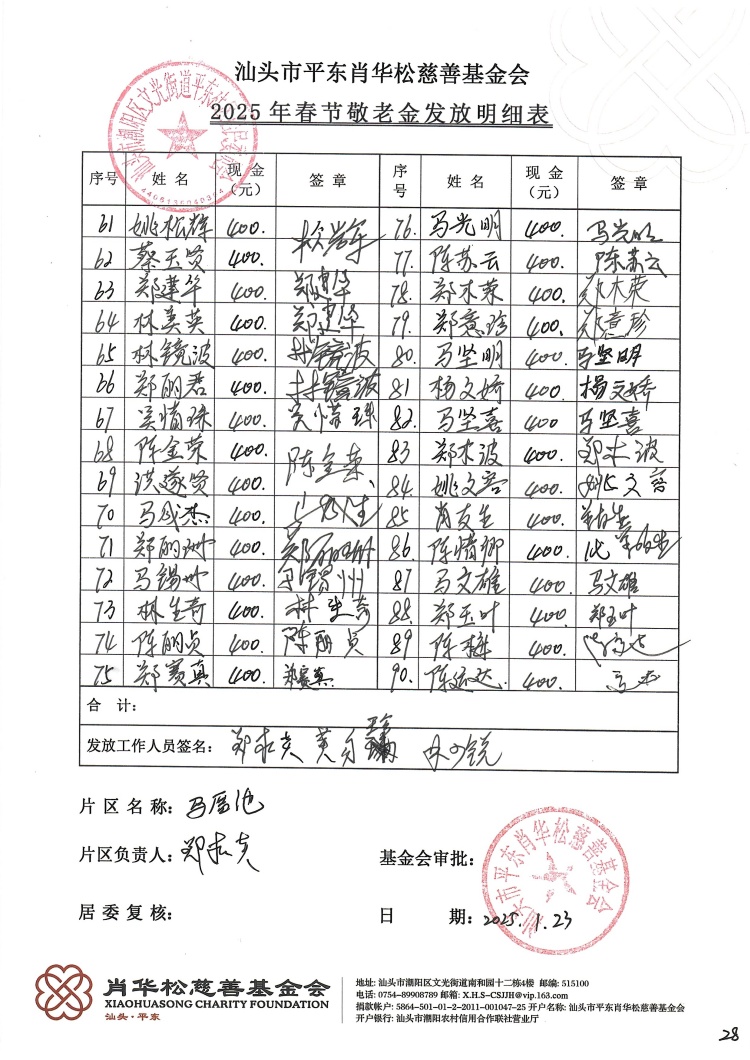 汕头市平东肖华松慈善基金会
2025年春节敬老金发放明细表
序号 姓名 现金（元） 签章 序号 姓名 现金（元） 签章
61 姚松辉 400. 76. 马光明 400. 马光明
62 蔡玉贤 400. 77. 陈苏云 400. 陈苏云
63 郑建华 400. 郑建华 78. 郑木荣 400. 郑木荣
64 林美英 400. 郑建华 79. 郑意珍 400. 郑意珍
65 林镜波 400. 林镜波 80. 马坚明 400. 马坚明
66 郑丽君 400. 林镜波 81 杨文娇 400. 杨文娇
67 吴惜珠 400. 吴惜珠 82. 马坚喜 400 马坚喜
68 陈金荣 400. 陈金荣 83 郑木波 400. 郑木波
69 洪遂贤 400. 84. 姚文容 400. 姚文容
70 马成杰 400. 85 肖友生 400.
71 郑丽珊 400. 郑丽珊 86 陈惜卿 400.
72 马锡州 400. 马锡州 87 马文雄 400. 马文雄
73 林生奇 400. 林生奇 88. 郑玉叶 400. 郑玉叶
74 陈丽贞 400. 陈丽贞 89 陈 400.
75 郑赛真 400. 郑赛真 90. 陈运达 400.
合计：
发放工作人员签名：
片区名称：
片区负责人：
基金会审批：
居委复核：
日期：2025.1.23
汕头市平东肖华松慈善基金会
肖华松慈善基金会
XIAOHUASONG CHARITY FOUNDATION
汕头·平东
地址: 汕头市潮阳区文光街道南和园十二栋4楼 邮编: 515100
电话: 0754-89908789 邮箱: X.H.S-CSJJH@vip.163.com
捐款帐户: 5864-501-01-2-2011-001047-25 开户名称: 汕头市平东肖华松慈善基金会
开户银行: 汕头市潮阳农村信用合作联社营业厅
28